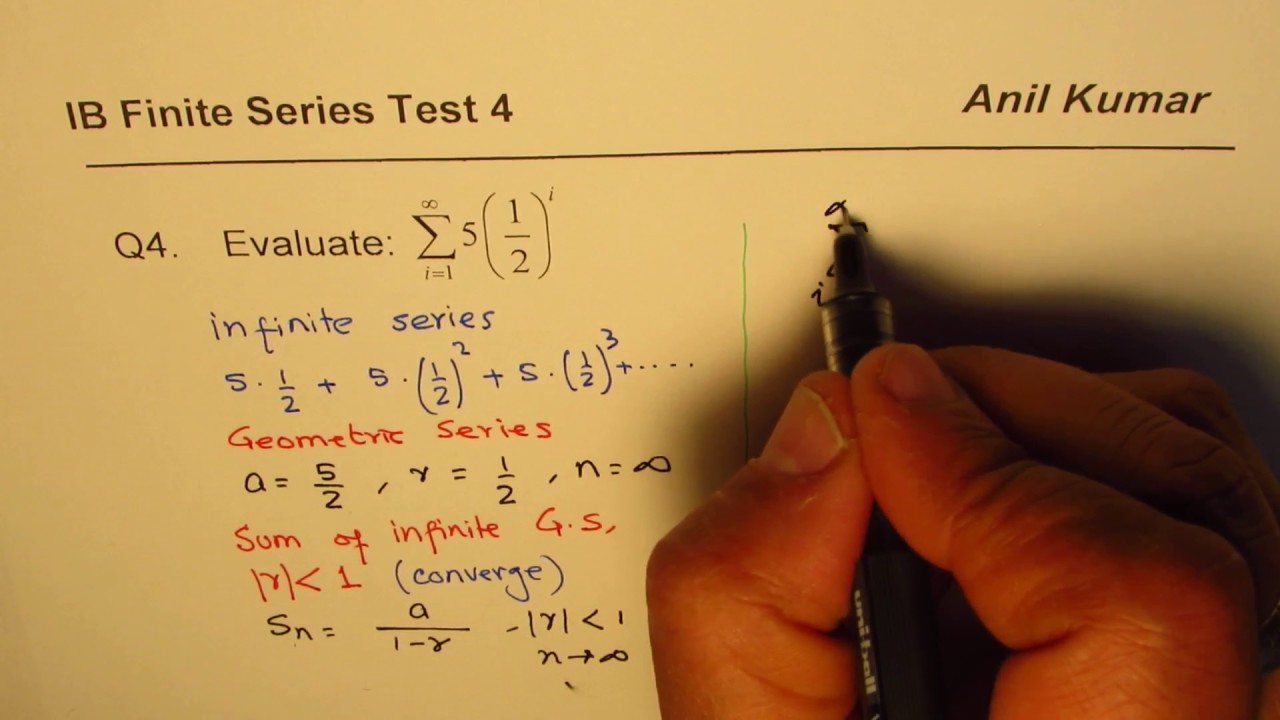 IB Finite Series Test 4
Anil Kumar
Q4. Evaluate: $\sum_{i=1}^{\infty} 5\left(\frac{1}{2}\right)^i$
infinite series
$5 \cdot \frac{1}{2} + 5 \cdot \left(\frac{1}{2}\right)^2 + 5 \cdot \left(\frac{1}{2}\right)^3 + \cdots$
Geometric Series
$a = \frac{5}{2}, r = \frac{1}{2}, n = \infty$
Sum of infinite G.S,
|r| < 1 (converge)
$S_n = \frac{a}{1-r}$ - |r| < 1
n → ∞
i
uniball